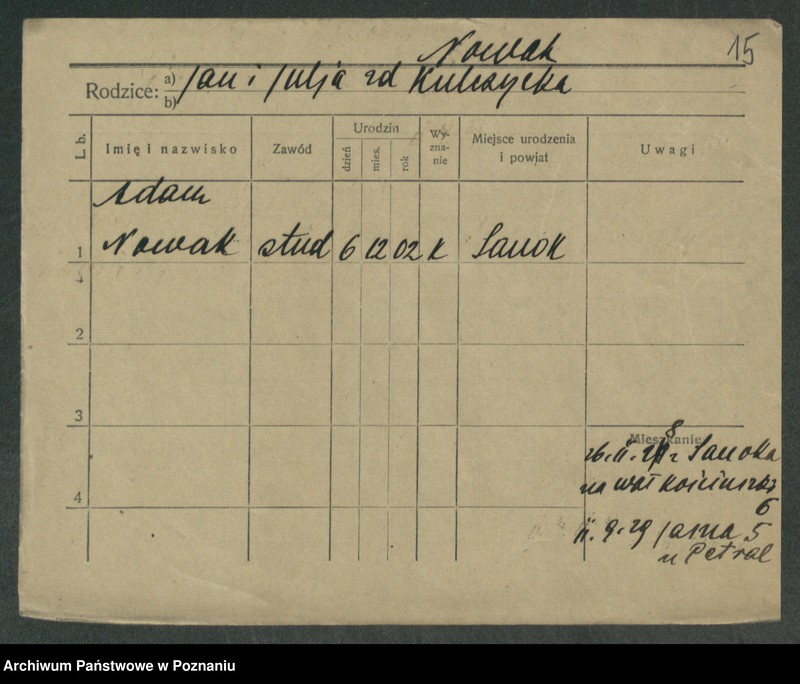 15
Nowak
Rodzice: a) Jan i Julja zd Kulczycka
b)
L. b. Imię i nazwisko Zawód Urodzin dzień mies. rok Wy- zna- nie Miejsce urodzenia i powiat Uwagi
Adam
1 Nowak stud 6 12 02 K Sanok
2
3
Mieszkanie
8 z Sanoka
na wał Kościuszki
6
4
11.9.29 Jasna 5
u Petral
Archiwum Państwowe w Poznaniu